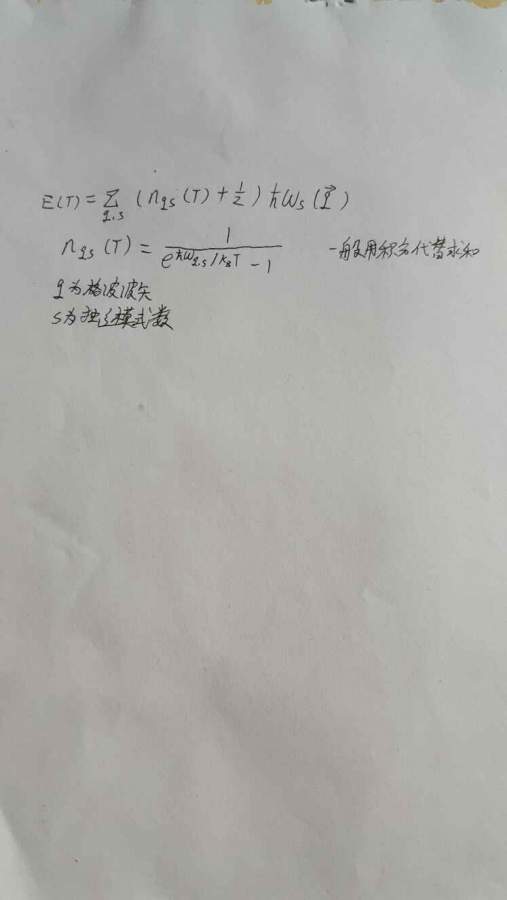 E(T) = Σ_{q,s} (n_{qs}(T) + 1/2) ħω_s(q⃗)
n_{qs}(T) = 1/(e^{ħω_{q,s}/k_BT} - 1) 一般用积分代替求和
q为格波波矢
s为独立模式数